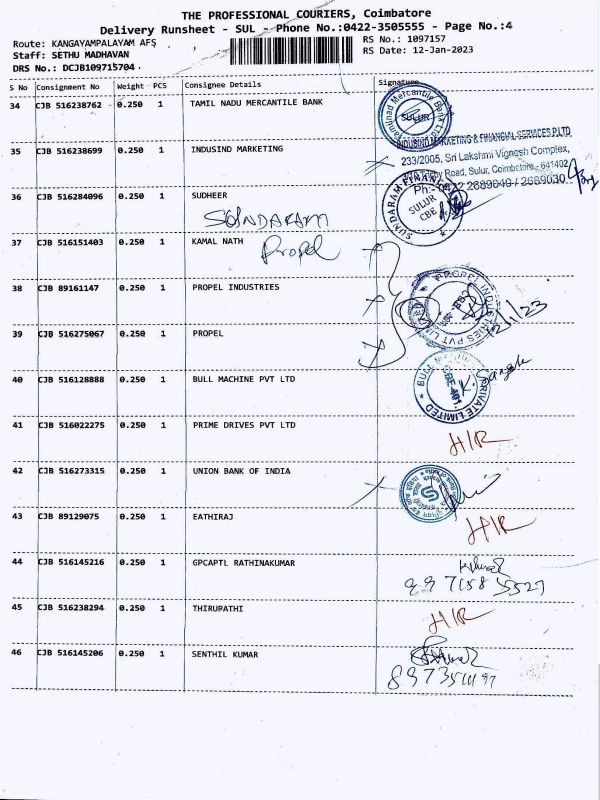 THE PROFESSIONAL COURIERS, Coimbatore
Delivery Runsheet - SUL - Phone No.:0422-3505555 - Page No.:4
Route: KANGAYAMPALAYAM AFS
RS No.: 1097157
Staff: SETHU MADHAVAN
RS Date: 12-Jan-2023
DRS No.: DCJB109715704
S No Consignment No Weight PCS Consignee Details Signature
34 CJB 516238762 0.250 1 TAMIL NADU MERCANTILE BANK
SULUR
35 CJB 516238699 0.250 1 INDUSIND MARKETING
INDUSIND MARKETING & FINANCIAL SERVICES P.LTD
233/2005, Sri Lakshmi Vignesh Complex,
Road, Sulur, Coimbatore - 641402
Ph:- 0422 2689049 / 2689030
36 CJB 516284096 0.250 1 SUDHEER
SUNDARAM
SUNDARAM FINANCE
SULUR
CBE
37 CJB 516151403 0.250 1 KAMAL NATH
Propel
38 CJB 89161147 0.250 1 PROPEL INDUSTRIES
PROPEL INDUSTRIES PVT LIMITED
12/1/23
39 CJB 516275067 0.250 1 PROPEL
40 CJB 516128888 0.250 1 BULL MACHINE PVT LTD
BULL PRIVATE LIMITED
41 CJB 516022275 0.250 1 PRIME DRIVES PVT LTD
H/R
42 CJB 516273315 0.250 1 UNION BANK OF INDIA
43 CJB 89129075 0.250 1 EATHIRAJ
H/R
44 CJB 516145216 0.250 1 GPCAPTL RATHINAKUMAR
45 CJB 516238294 0.250 1 THIRUPATHI
H/R
46 CJB 516145206 0.250 1 SENTHIL KUMAR